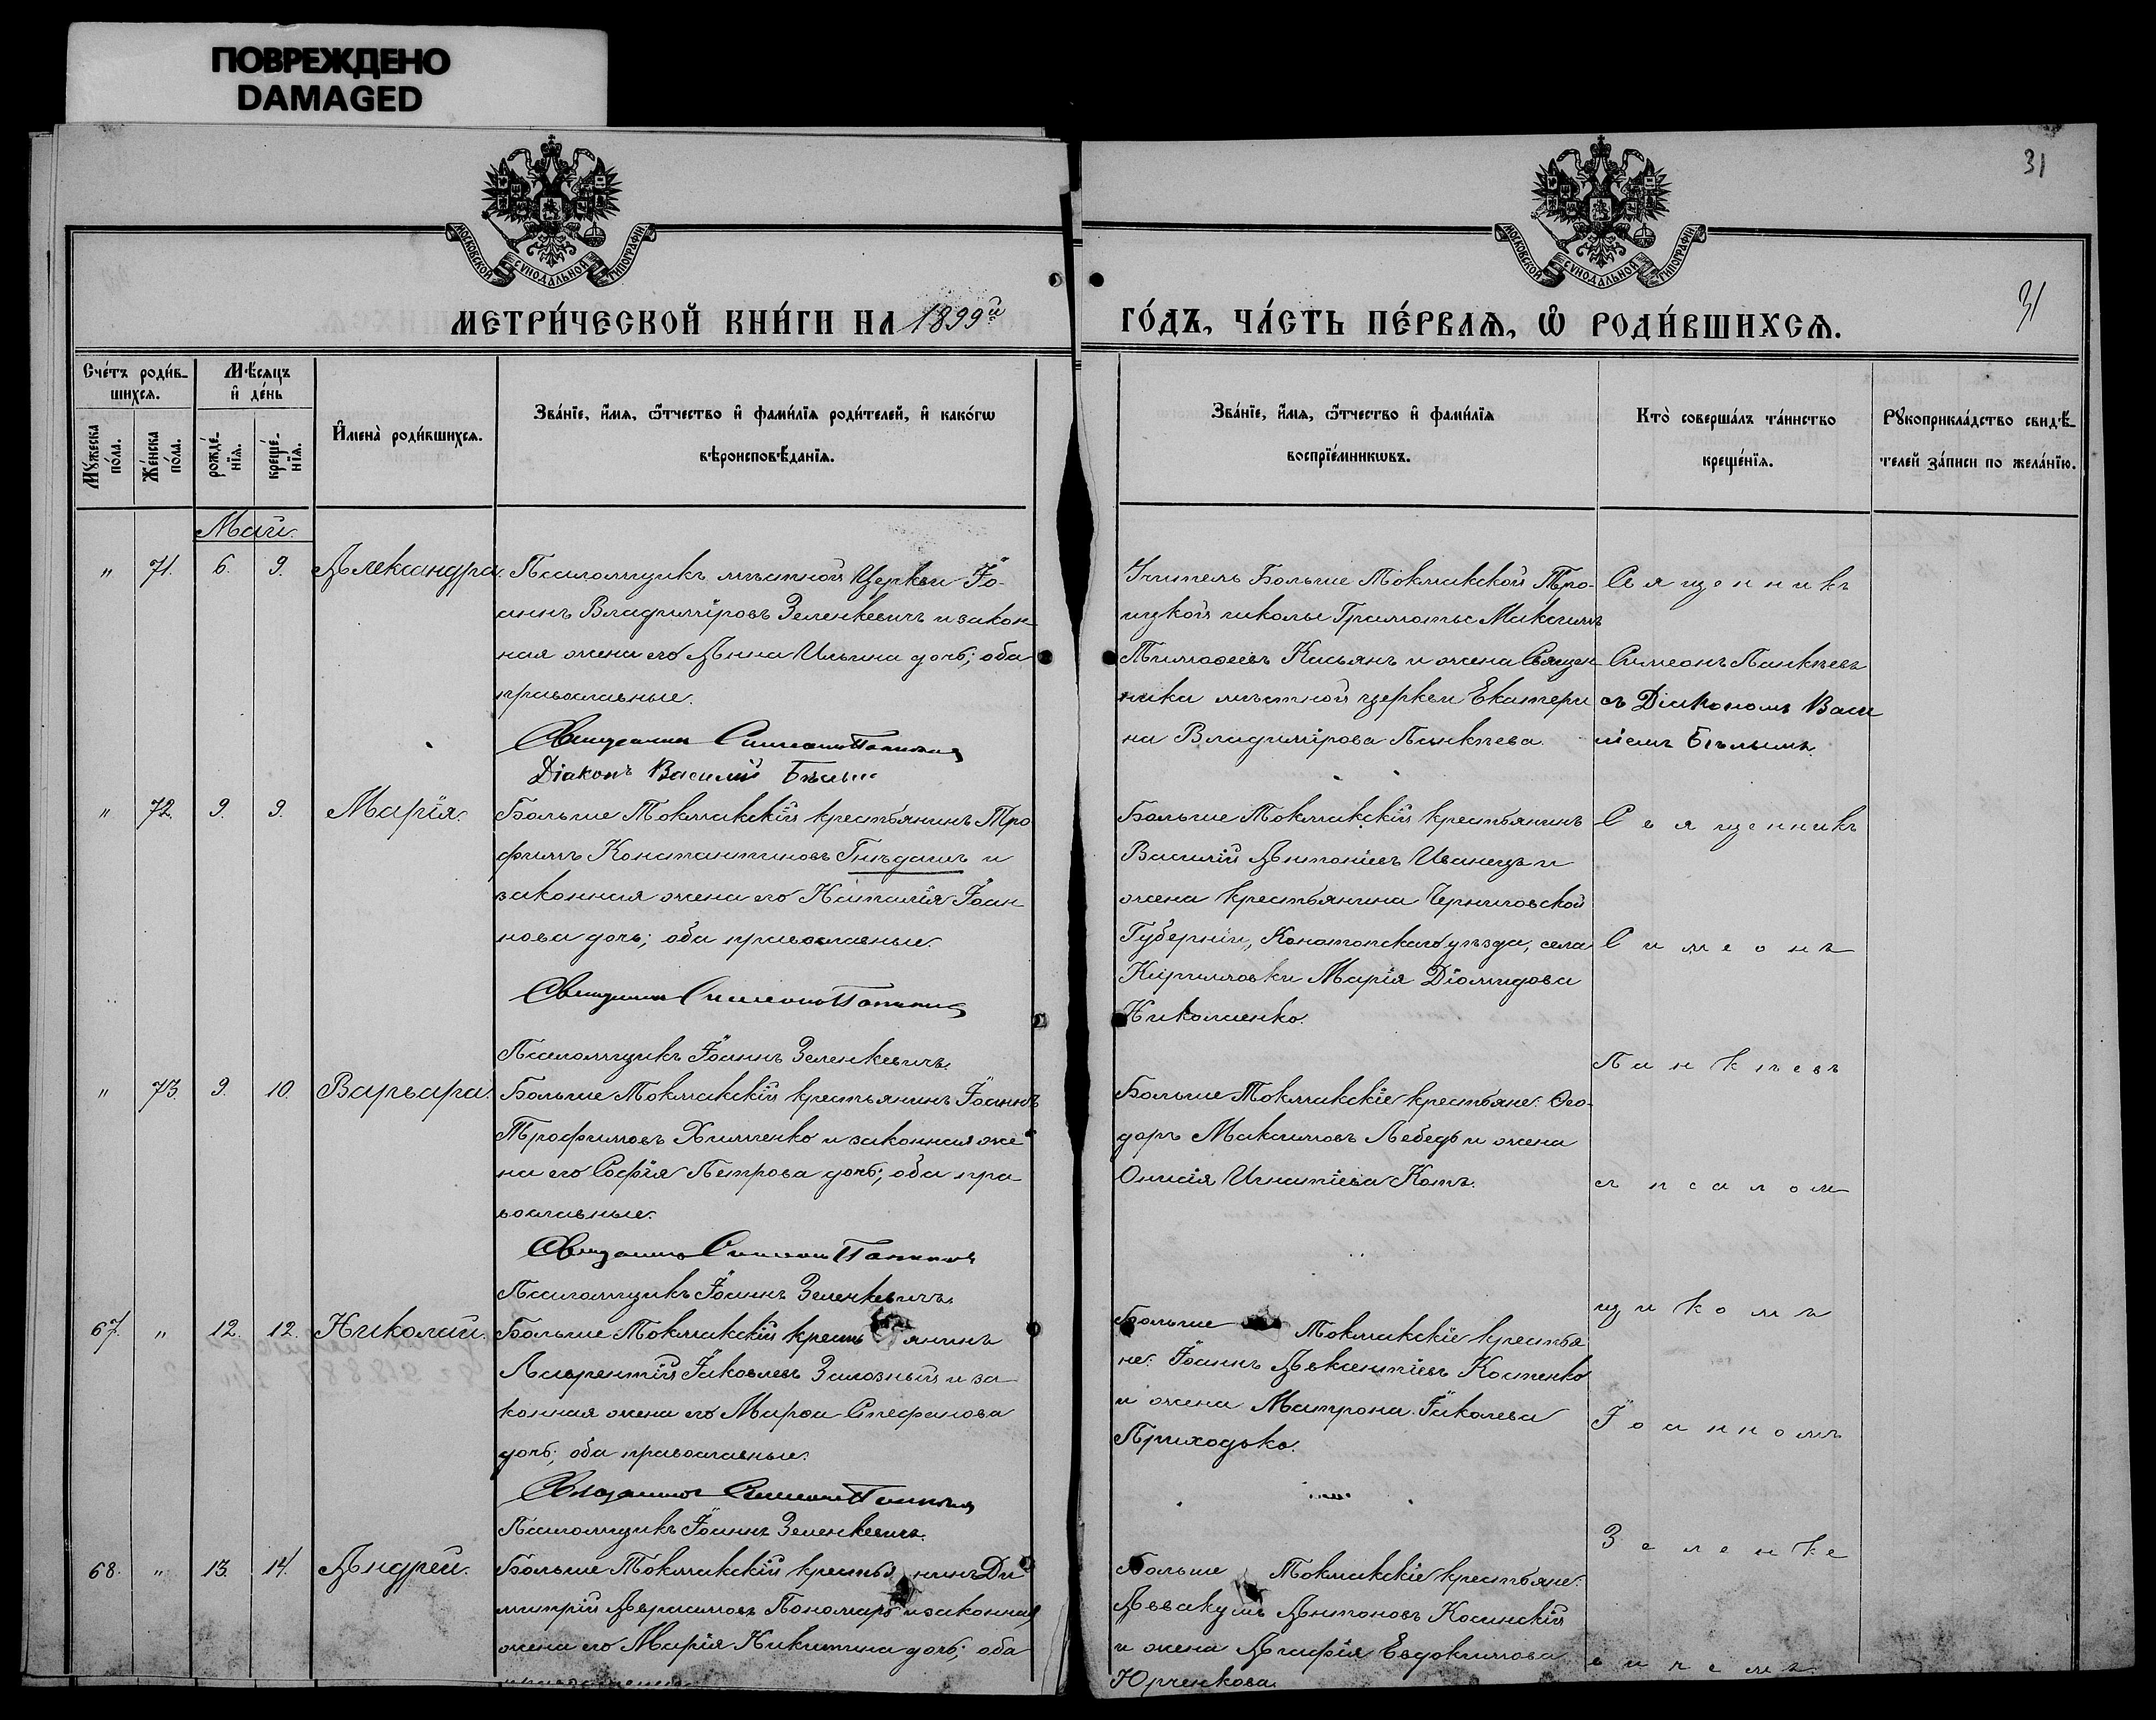 ПОВРЕЖДЕНО
DAMAGED
31
МОСКОВСКОЙ СѴНОДАЛЬНОЙ ТИПОГРАФІИ
МОСКОВСКОЙ СѴНОДАЛЬНОЙ ТИПОГРАФІИ
МЕТРИ́ЧЕСКОЙ КНИ́ГИ НА 1899й
ГО́ДЪ, ЧА́СТЬ ПЕ́РВАѦ, Ѽ РОДИ́ВШИХСѦ.
31
Сче́тъ роди́в-
шихсѧ.
Мѣ́сяцъ
и҆ де́нь
Мꙋ́жеска
по́ла.
Же́нска
по́ла.
рожде́-
нїѧ.
креще́-
нїѧ.
И҆мена̀ роди́вшихсѧ.
Зва́нїе, и҆́мѧ, ѻ҆́тчество и҆ фами́лїѧ роди́телей, и҆ како́гѡ
вѣроисповѣ́данїѧ.
Зва́нїе, и҆́мѧ, ѻ҆́тчество и҆ фами́лїѧ
воспрїе́мникѡвъ.
Кто̀ соверша́лъ та́инство
креще́нїѧ.
Рꙋкоприкла́дство свидѣ́-
телей за́писи по жела́нїю.
Май.
" 71. 6. 9. Александра.
Псаломщикъ мѣстной Церкви Іо-
аннъ Владиміровъ Зеленкевичъ и закон
ная жена его Анна Ильина дочь; оба
православные.
Священникъ Симеонъ Панкѣевъ
Діаконъ Василій Бѣлый
Учитель Больше Токмакской Тро-
ицкой школы Грамоты Максимъ
Тимоѳеевъ Касьянъ и жена Священ
ника мѣстной церкви Екатери
на Владимірова Панкѣева.
Священникъ
Симеонъ Панкѣевъ
съ Діакономъ Васи
ліемъ Бѣлымъ.
" 72. 9. 9. Марія.
Больше Токмакскій крестьянинъ Тро
фимъ Константиновъ Гнѣдашъ и
законная жена его Наталія Іоан
нова дочь; оба православные.
Священникъ Симеонъ Панкѣевъ
Псаломщикъ Іоаннъ Зеленкевичъ.
Больше Токмакскій крестьянинъ
Василій Антоніевъ Иванецъ и
жена крестьянина Черниговской
Губерніи, Конотопскаго уѣзда, села
Кирилловки Марія Діомидова
Николаенко.
Священникъ
Симеонъ
Панкѣевъ
" 73. 9. 10. Варвара.
Больше Токмакскій крестьянинъ Іоаннъ
Трофимовъ Химченко и законная же
на его Софія Петрова дочь; оба пра-
вославные.
Священникъ Симеонъ Панкѣевъ
Псаломщикъ Іоаннъ Зеленкевичъ.
Больше Токмакскіе крестьяне: Ѳео-
доръ Максимовъ Лебедь и жена
Онисія Игнатіева Котъ.
съ псалом
щикомъ
67. " 12. 12. Николай.
Больше Токмакскій кресть янинъ
Лаврентій Іаковлевъ Заложный и за-
конная жена его Марѳа Стефанова
дочь; оба православные.
Священникъ Симеонъ Панкѣевъ
Псаломщикъ Іоаннъ Зеленкевичъ.
Больше Токмакскіе крестья
не: Іоаннъ Авксентіевъ Костенко
и жена Матрона Іаковлева
Приходько.
Іоанномъ
Зеленке
68. " 13. 14. Андрей.
Больше Токмакскій крестья нинъ Ди
митрій Герасимовъ Пономарь и законная
жена его Марія Никитина дочь; оба
православные.
Больше Токмакскіе крестьяне:
Аввакумъ Антоновъ Косинскій
и жена Агафія Евдокимова
Юрченкова.
вичемъ